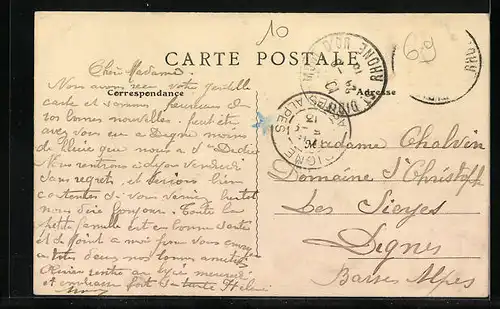 10
69
CARTE POSTALE
Correspondance
Adresse
RHONE
DIGNE
ALPES
Chère Madame.
Nous avons reçu votre gentille
carte et sommes heureux de
vos bonnes nouvelles. peut être
avez vous eu à Digne moins
de pluie que nous à St Didier
Nous rentrons à Lyon vendredi
sans regrets, et serions bien
contentes si vous veniez bientôt
nous dire bonjour. Toute la
petite famille est en bonne santé
et se joint à moi pour vous envoyer
nos bonnes amitiés
rentre au lycée mercredi
et embrasse fort sa tante Hélène
Madame Chalvin
Domaine St Christophe
Les Sieyes
Digne
Basses Alpes